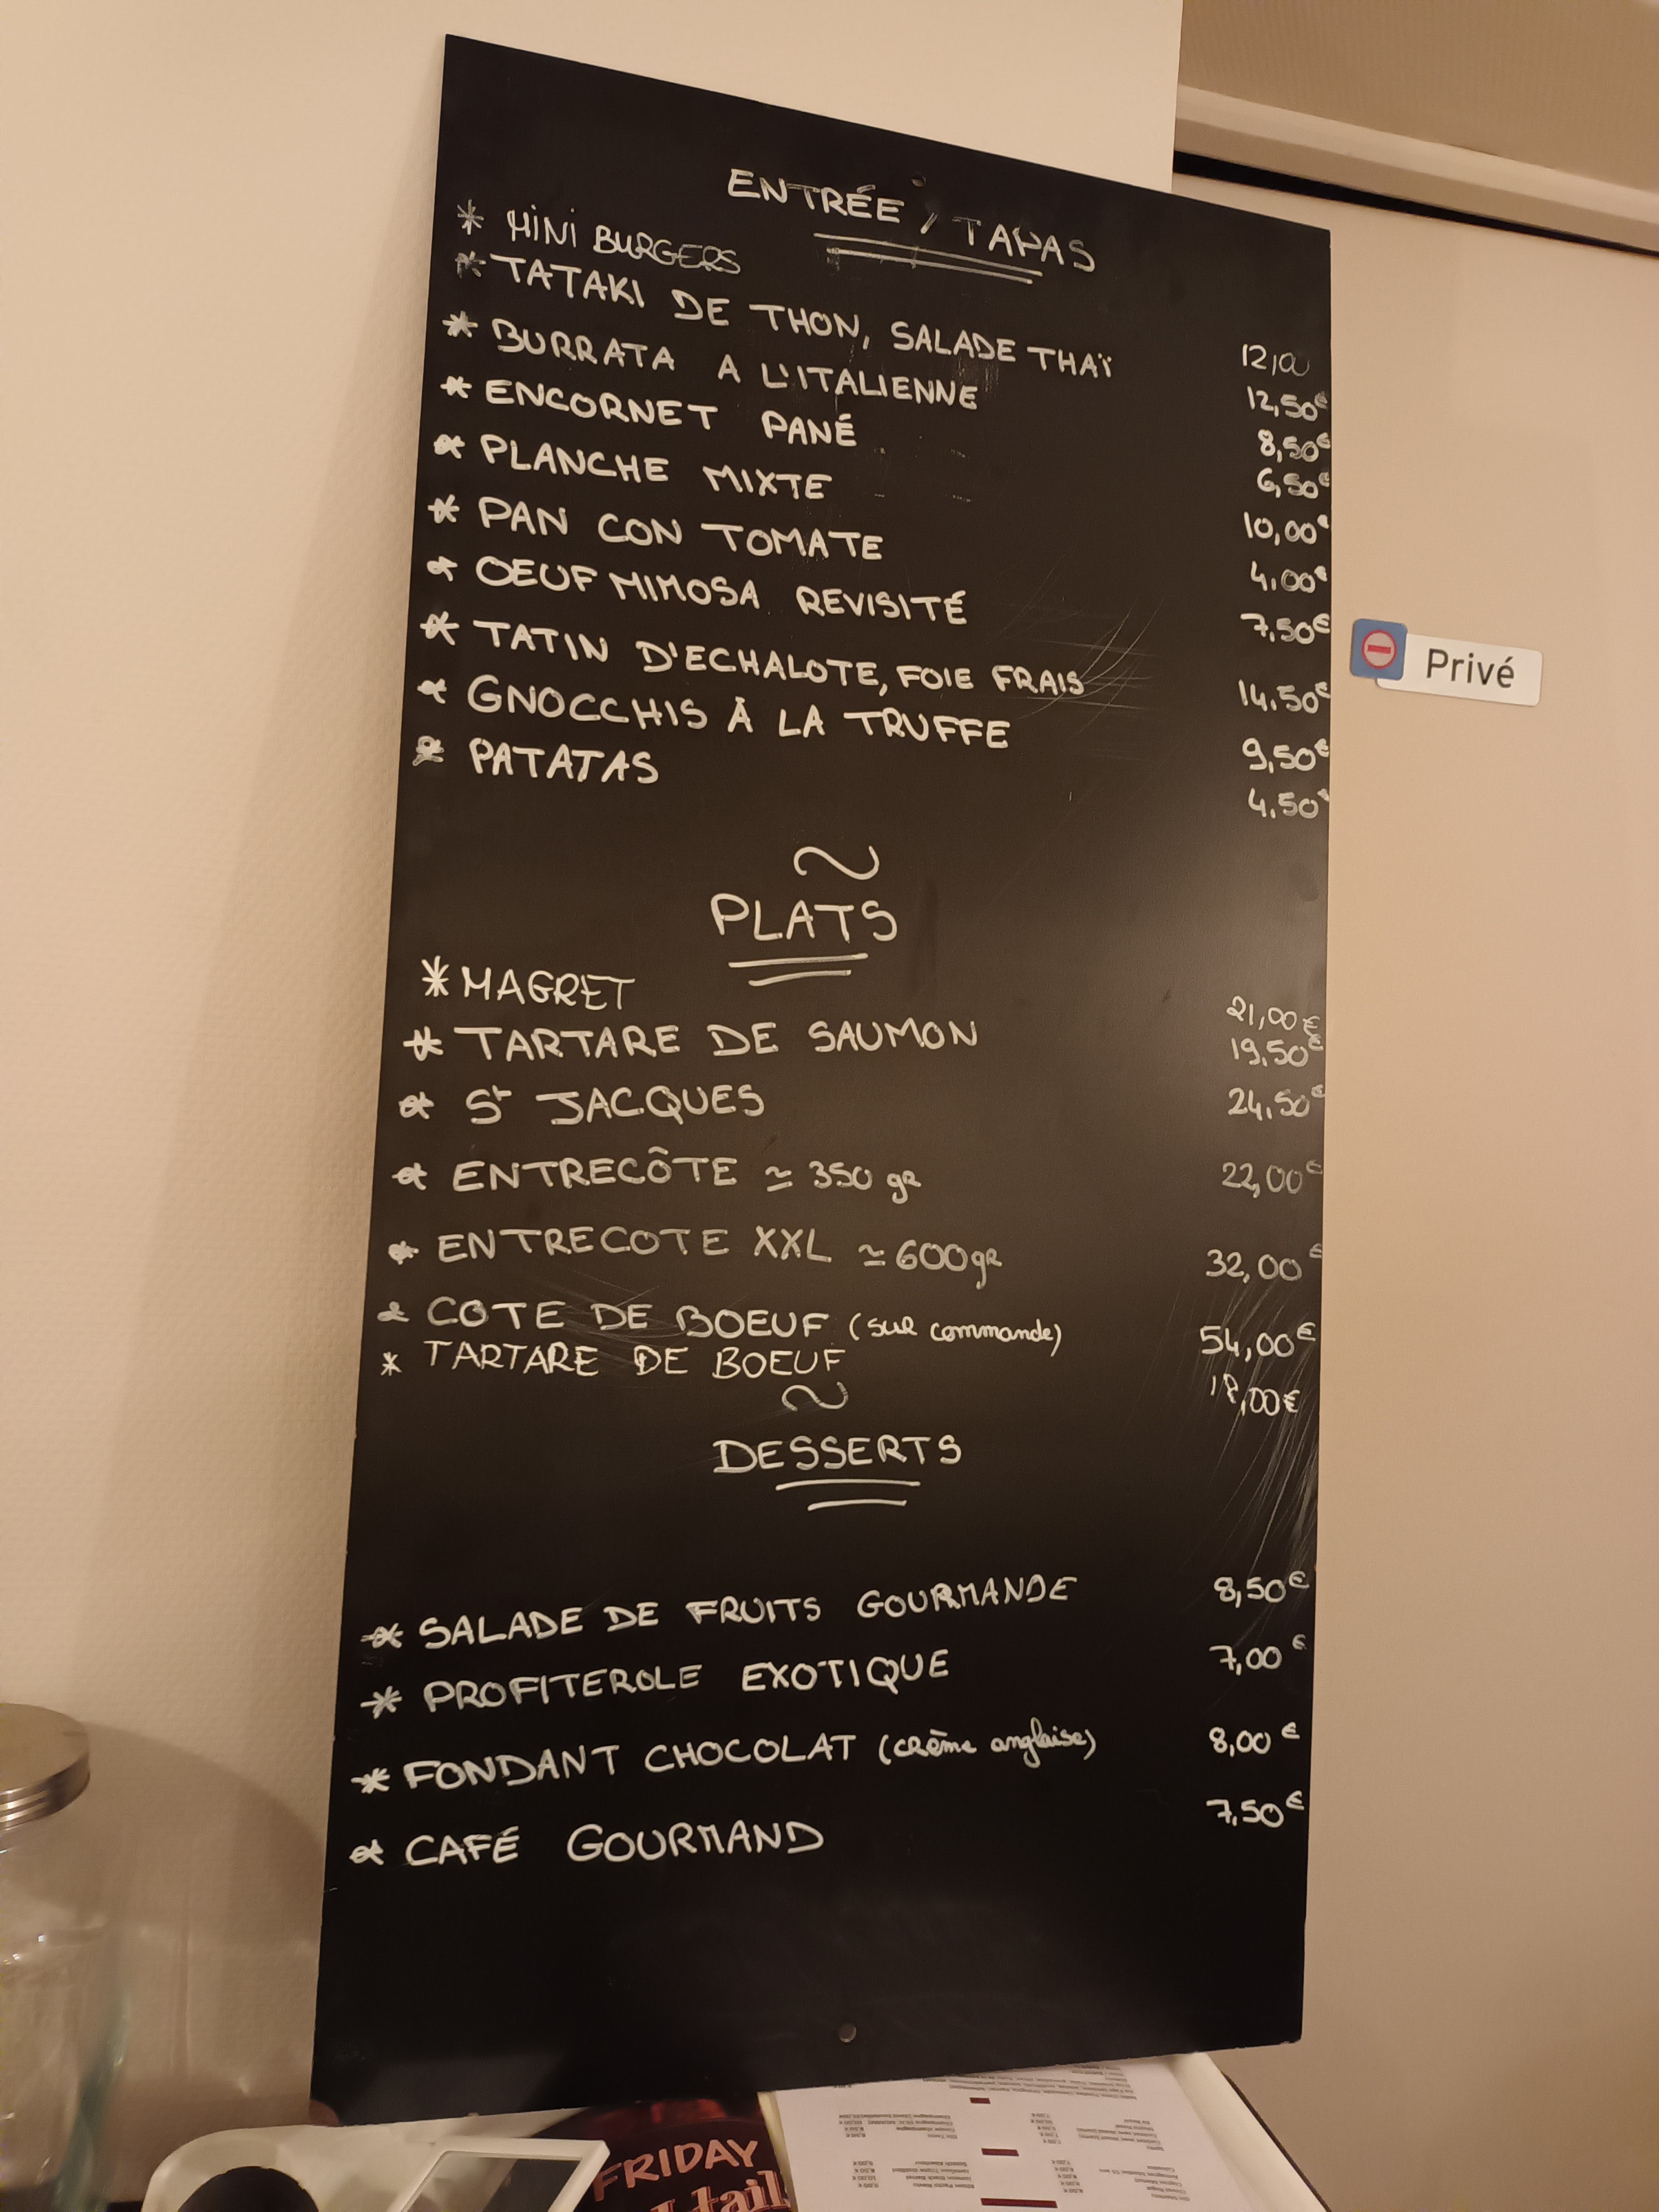 ENTRÉE / TAPAS
* MINI BURGERS 12,00
* TATAKI DE THON, SALADE THAÏ 12,50€
* BURRATA A L'ITALIENNE 8,50€
* ENCORNET PANÉ 6,50€
* PLANCHE MIXTE 10,00€
* PAN CON TOMATE 4,00€
* OEUF MIMOSA REVISITÉ 7,50€
* TATIN D'ECHALOTE, FOIE FRAIS 14,50€
* GNOCCHIS À LA TRUFFE 9,50€
* PATATAS 4,50€
~
PLATS
* MAGRET 21,00€
* TARTARE DE SAUMON 19,50€
* St JACQUES 24,50€
* ENTRECÔTE ≃ 350 gr 22,00€
* ENTRECOTE XXL ≃ 600gr 32,00€
* COTE DE BOEUF (sur commande) 54,00€
* TARTARE DE BOEUF 18,00€
~
DESSERTS
* SALADE DE FRUITS GOURMANDE 8,50€
* PROFITEROLE EXOTIQUE 7,00€
* FONDANT CHOCOLAT (crème anglaise) 8,00€
* CAFÉ GOURMAND 7,50€
Privé
FRIDAY